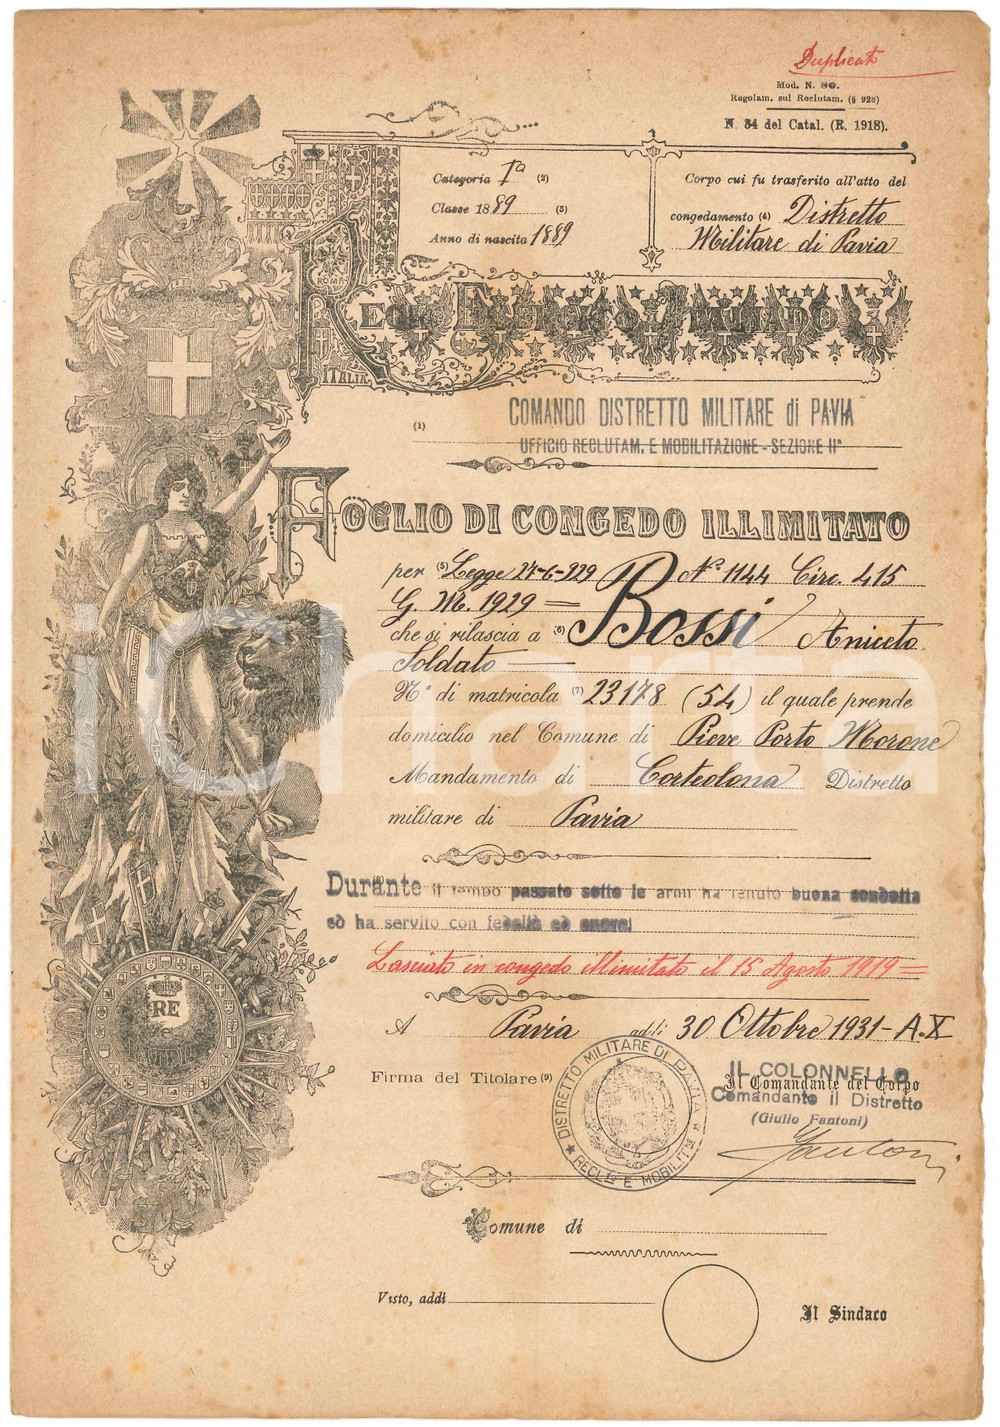 Duplicato
Mod. N. 80.
Regolam. sul Reclutam. (§ 928)
N. 34 del Catal. (R. 1918).
Categoria Iª (2)
Classe 1889 (3)
Anno di nascita 1889
Corpo cui fu trasferito all'atto del
congedamento (4) Distretto
Militare di Pavia
ROMA
REGIO ESERCITO ITALIANO
ITALIA
(1)
COMANDO DISTRETTO MILITARE di PAVIA
UFFICIO RECLUTAM. E MOBILITAZIONE - SEZIONE IIª
FOGLIO DI CONGEDO ILLIMITATO
per (5) Legge 27-6-929 N° 1144 Circ. 415
G. M. 1929 =
che si rilascia a (6) Bossi Aniceto
Soldato —
N° di matricola (7) 23178 (54) il quale prende
domicilio nel Comune di Pieve Porto Morone
Mandamento di Corteolona Distretto
militare di Pavia
Durante il tempo passato sotto le armi ha tenuto buona condotta
ed ha servito con fedeltà ed onore.
Lasciato in congedo illimitato il 15 Agosto 1919 =
RE
PATRIA
A Pavia addì 30 Ottobre 1931 - A. X
Firma del Titolare (9)
IL COLONNELLO
Il Comandante del Corpo
Comandante il Distretto
(Giulio Fantoni)
Fantoni
DISTRETTO MILITARE DI PAVIA
Comune di
Visto, addì
Il Sindaco
iCharta